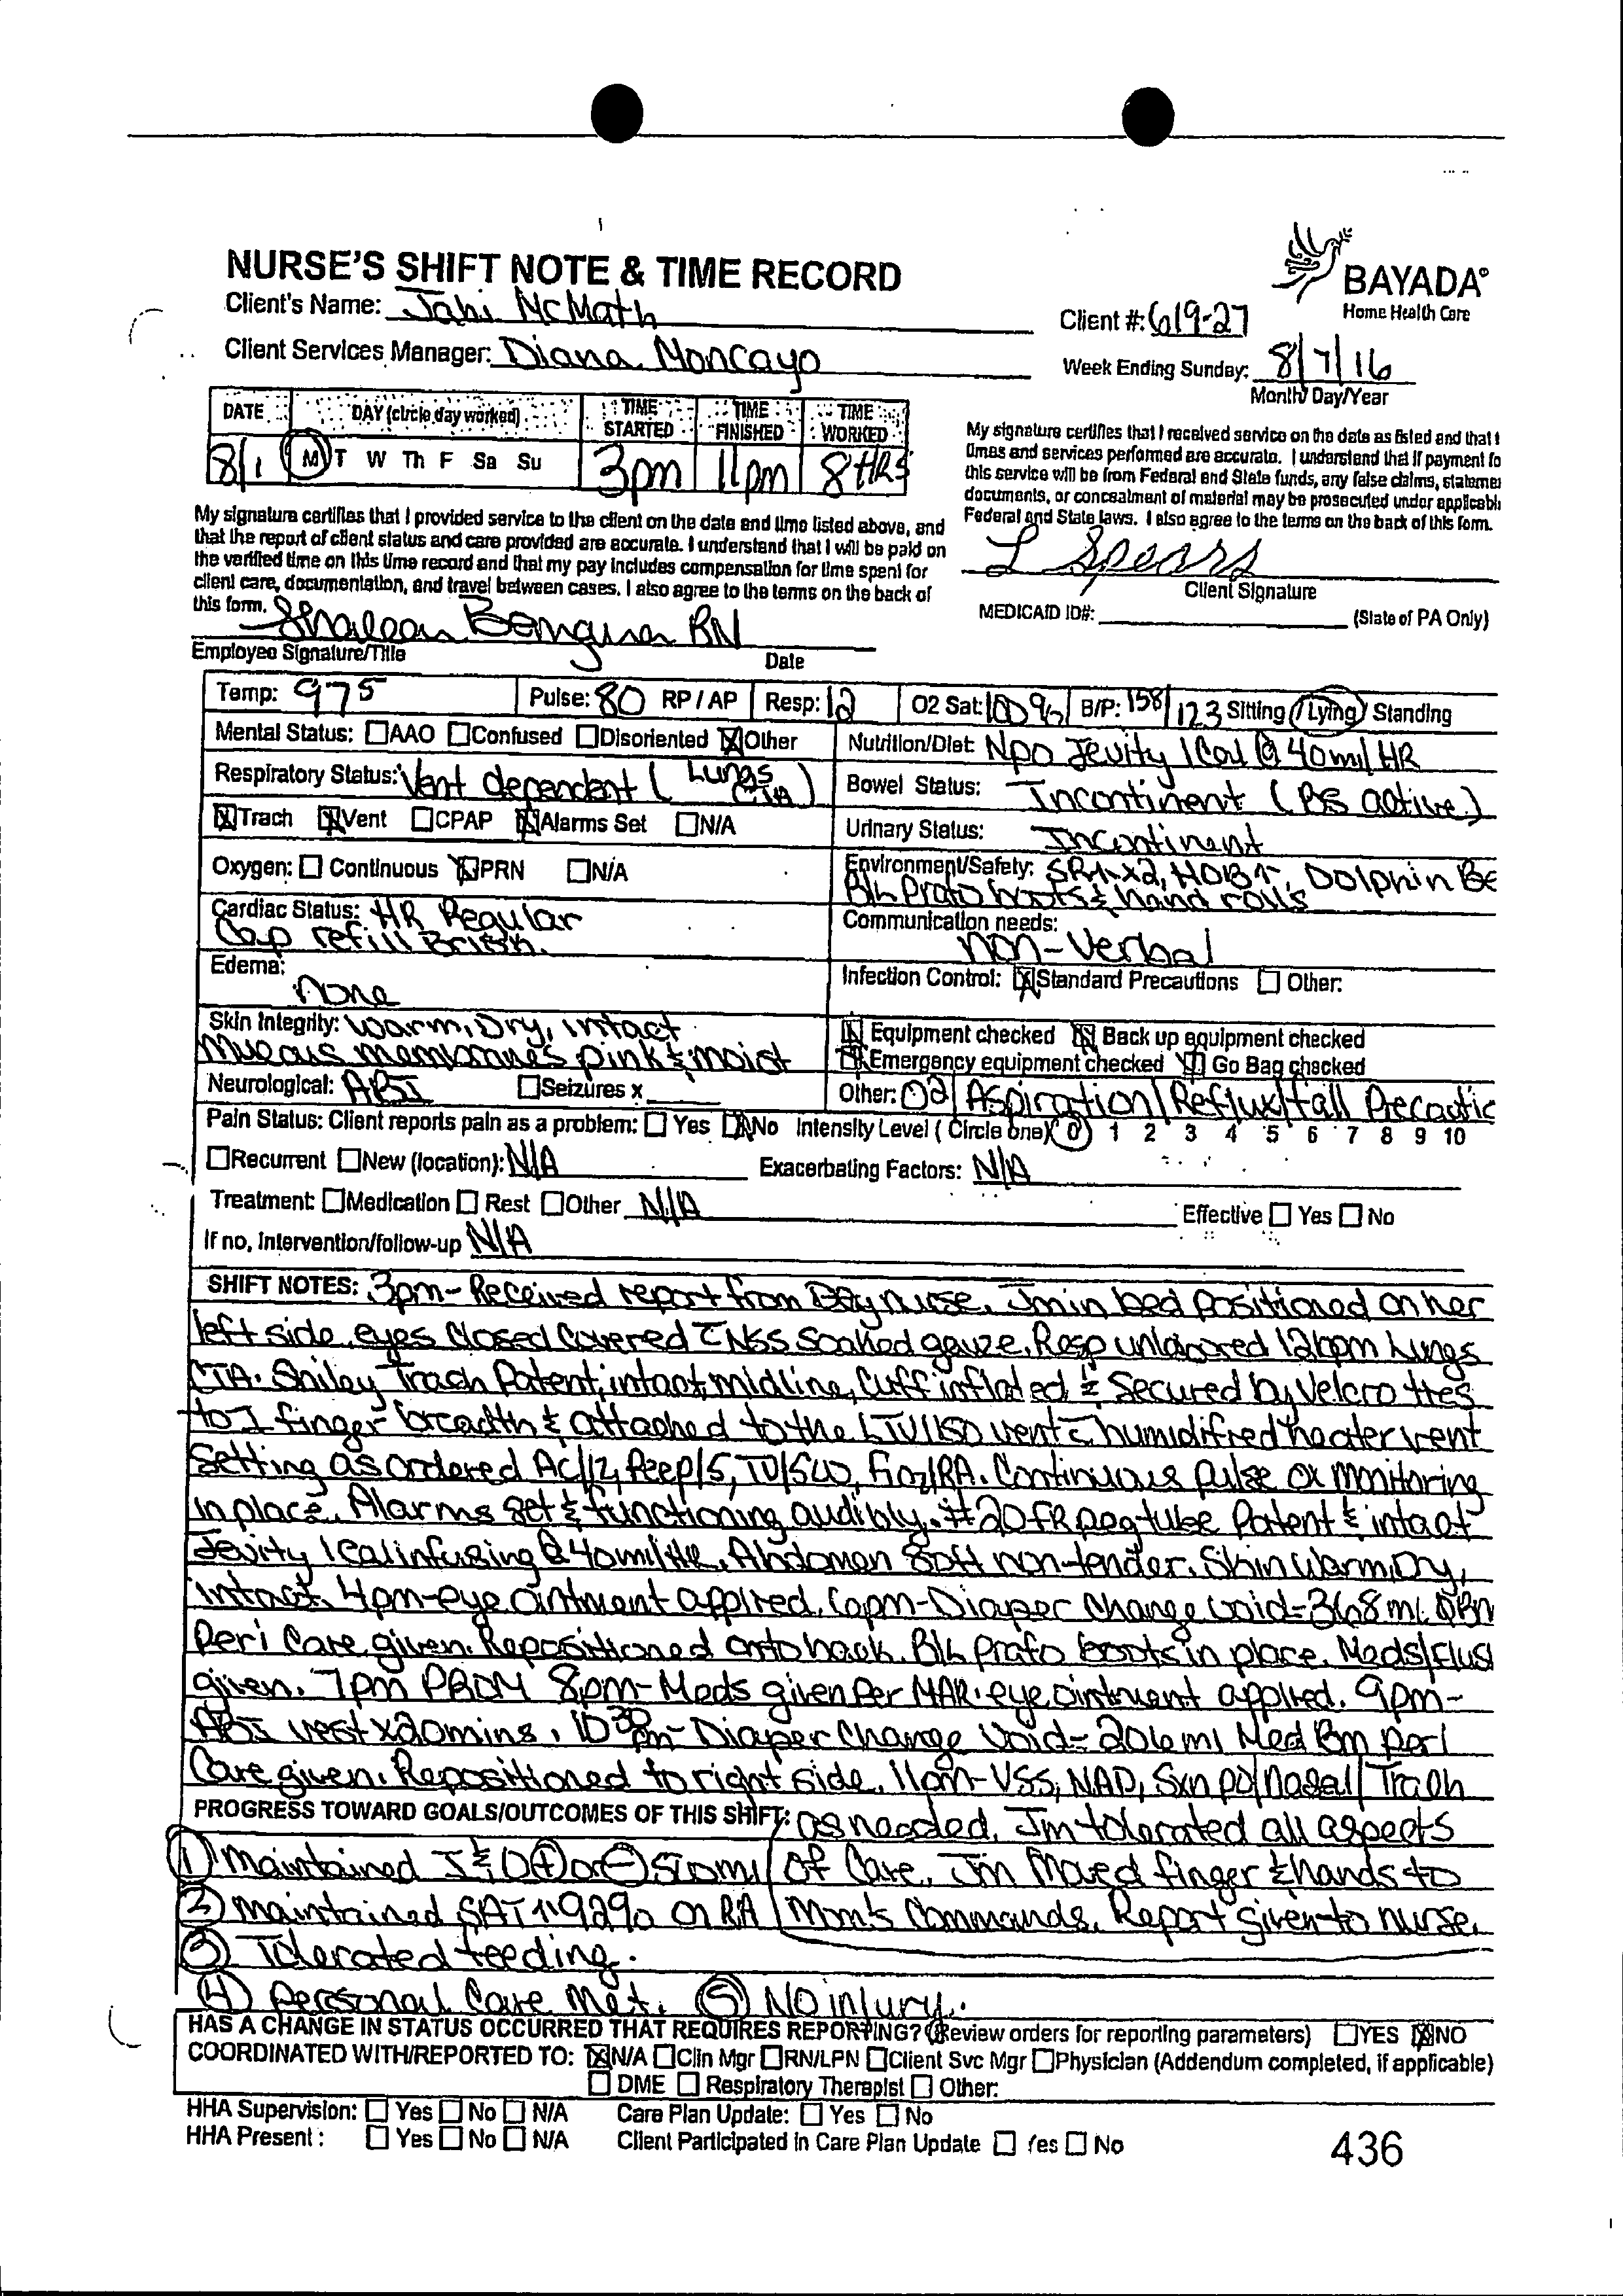 NURSE'S SHIFT NOTE & TIME RECORD
BAYADA®
Home Health Care
Client's Name: Jahi McMath
Client #: 619-27
Client Services Manager: Diana Moncayo
Week Ending Sunday: 8/7/16
Month/ Day/Year
DATE DAY (circle day worked) TIME STARTED TIME FINISHED TIME WORKED
8/1 M T W Th F Sa Su 3pm 11pm 8 HRS
My signature certifies that I received service on the date as listed and that t
times and services performed are accurate. I understand that if payment fo
this service will be from Federal and State funds, any false claims, statemer
documents, or concealment of material may be prosecuted under applicabl
Federal and State laws. I also agree to the terms on the back of this form.
My signature certifies that I provided service to the client on the date and time listed above, and
that the report of client status and care provided are accurate. I understand that I will be paid on
the verified time on this time record and that my pay includes compensation for time spent for
client care, documentation, and travel between cases. I also agree to the terms on the back of
this form.
L Spears
Client Signature
MEDICAID ID#: (State of PA Only)
RN
Employee Signature/Title Date
Temp: 975 Pulse: 80 RP / AP Resp: 12 O2 Sat: 100% B/P: 158/123 Sitting / Lying / Standing
Mental Status: AAO Confused Disoriented Other
Nutrition/Diet: NPO Jevity 1 Cal @ 40ml/HR
Respiratory Status: Vent dependent (Lungs CTA)
Bowel Status: Incontinent (BS active)
Trach Vent CPAP Alarms Set N/A
Urinary Status: Incontinent
Oxygen: Continuous PRN N/A
Environment/Safety: SR↑x2, HOB↑, Dolphin Be
B/L Prafo boots & hand rolls
Cardiac Status: HR Regular
Cap refill Brisk.
Communication needs:
non-verbal
Edema:
none
Infection Control: Standard Precautions Other:
Skin Integrity: warm, Dry, intact
mucous membranes pink & moist
Equipment checked Back up equipment checked
Emergency equipment checked Go Bag checked
Neurological: ABI Seizures x
Other: O2/Aspiration/Reflux/fall Precautic
Pain Status: Client reports pain as a problem: Yes No Intensity Level ( Circle one) 0 1 2 3 4 5 6 7 8 9 10
Recurrent New (location): N/A Exacerbating Factors: N/A
Treatment: Medication Rest Other N/A Effective Yes No
If no, Intervention/follow-up N/A
SHIFT NOTES: 3pm- Received report from Day nurse. Jm in bed positioned on her
left side, eyes closed covered c̄ NSS soaked gauze. Resp unlabored 12bpm Lungs
CTA. Shiley Trach Patent, intact, midline, cuff inflated & secured by Velcro ties
to 1 finger breadth & attached to the LTV1150 vent c̄ humidified heater vent
Setting as ordered AC/12, Peep/5, TV/500, FiO2/RA. Continuous pulse ox monitoring
in place. Alarms set & functioning audibly. #20FR peg tube Patent & intact
Jevity 1cal infusing @ 40ml/HR. Abdomen soft non-tender. Skin Warm, Dry,
intact. 4pm-eye ointment applied. 6pm-Diaper Change void=368ml. ØBM
Peri Care given. Repositioned onto back. B/L prafo boots in place. Meds/Flus
given. 7pm PROM 8pm-Meds given Per MAR. eye ointment applied. 9pm-
vest x20mins. 10³⁰pm- Diaper Change Void=206ml Med Bm peri
Care given. Repositioned to right side. 11pm-VSS, NAD, Sxn po/nasal/Trach
PROGRESS TOWARD GOALS/OUTCOMES OF THIS SHIFT: as needed. Jm tolerated all aspects
① Maintained I & O ⊕ or ⊖ 510ml of Care. Jm Moved finger & hands to
② Maintained SAT ↑ 92% on RA Mom's Commands. Report given to nurse.
③ Tolerated feeding.
④ Personal Care Met. ⑤ No injury.
HAS A CHANGE IN STATUS OCCURRED THAT REQUIRES REPORTING? (Review orders for reporting parameters) YES NO
COORDINATED WITH/REPORTED TO: N/A Clin Mgr RN/LPN Client Svc Mgr Physician (Addendum completed, if applicable)
DME Respiratory Therapist Other:
HHA Supervision: Yes No N/A Care Plan Update: Yes No
HHA Present : Yes No N/A Client Participated in Care Plan Update Yes No
436